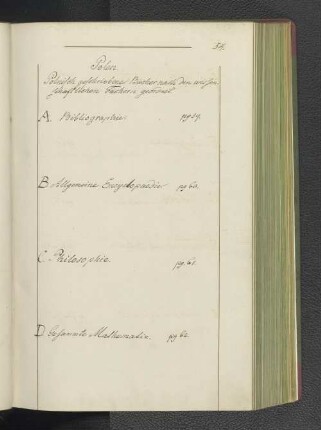 58.
Polen
Polnisch geschriebene Bücher nach den wissen
schaftlichen Fächern geordnet
A. Bibliographie. pg 59.
B Allgemeine Encyclopaedie pg 60.
C. Philosophie. pg. 61.
D. Gesammte Mathematic. pg 62.